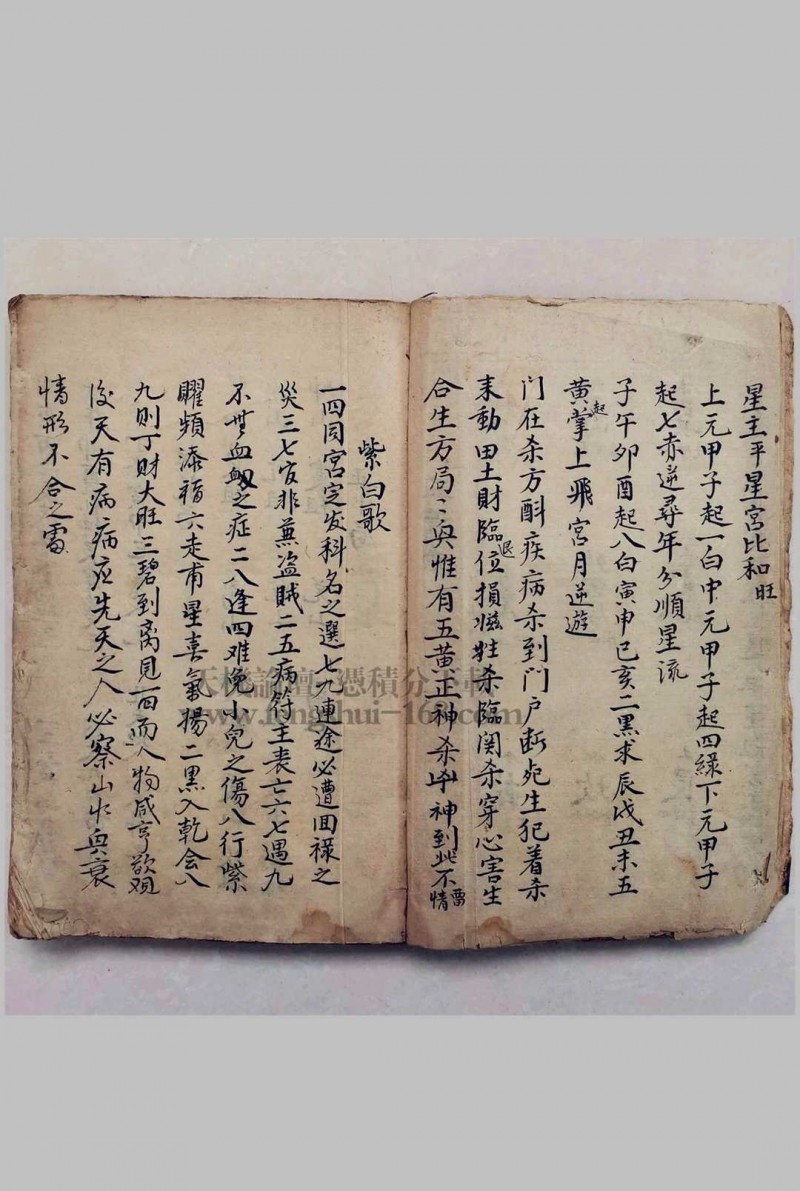 星主平星宮比和旺
上元甲子起一白中元甲子起四緑下元甲子
起七赤逆尋年分順星流
子午卯酉起八白寅申巳亥二黑求辰戌丑未五
黄起掌上飛宮月逆遊
门在杀方斟疾病杀到门户断死生犯着杀
来動田土財臨位退損滋牲杀臨関杀穿心害生
合生方局〻興惟有五黄正神杀凶神到此不
情
紫白歌
一四同宮定发科名之選七九連途必遭回禄之
災三七官非兼盗賊二五病符主丧亡六七遇九
不無血之症二八逢四难免小兒之傷八行紫
曜頻添福六走甫星喜氣揚二黑入乾会八
九則丁財大旺三碧到离見一百而人物咸亨欲观
後天有病病应先天之人必察山水興衰
情形不合之
www.fengshui-16.com